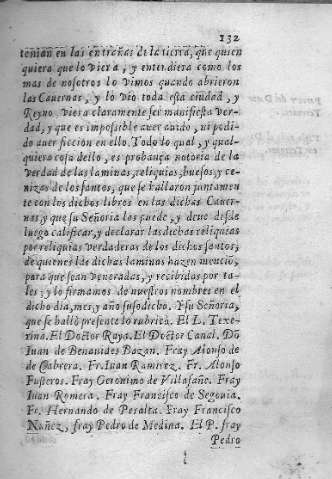 132
tenian en las entrañas de la tierra, que quien
quiera que lo viera, y entendiera como los
mas de nosotros lo vimos quando abrieron
las Cauernas, y lo vio toda esta ciudad, y
Reyno. Viera claramente ser manifiesta Ver-
dad, y que es impossible auer auido, ni podi-
do auer ficcion en ello. Todo lo qual, y qual-
quiera cosa dello, es probança notoria de la
verdad de las laminas, reliquias, huesos, y ce-
nizas de los santos, que se hallaron juntamen
te con los dichos libros en las dichas Cauer-
nas, y que su Señoria los puede, y deue desde
luego calificar, y declarar las dichas reliquias
por reliquias verdaderas de los dichos santos,
de quienes las dichas laminas hazen menciō,
para que sean veneradas, y recibidas por ta-
les; y lo firmamos de nuestros nombres en el
dicho dia, mes, y año susodicho. Y su Señoria,
que se halló presente lo rubricó. El L. Texe-
rina. El Doctor Raya. El Doctor Canal. Dō
Iuan de Benauides Bazan. Fray Alonso de
de Cabrera. Fr. Iuan Ramirez. Fr. Alonso
Fusteros. Fray Geronimo de Villasañe. Fray
Iuan Romera. Fray Francisco de Segouia.
Fr. Hernando de Peralta. Fray Francisco
Nuñez, fray Pedro de Medina. El P. fray
Pedro